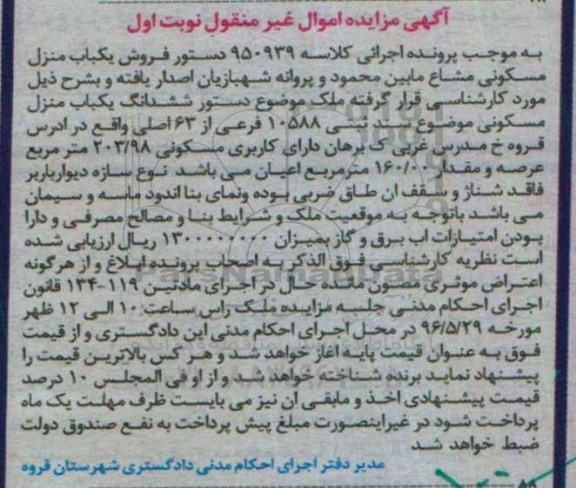 آگهی مزایده اموال غیر منقول نوبت اول
به موجب پرونده اجرائی کلاسه ۹۵۰۹۳۹ دستور فروش یکباب منزل
مسکونی مشاع مابین محمود و پروانه شهبازیان اصدار یافته و بشرح ذیل
مورد کارشناسی قرار گرفته ملک موضوع دستور ششدانگ یکباب منزل
مسکونی موضوع سند ثبتی ۱۰۵۸۸ فرعی از ۶۳ اصلی واقع در ادرس
قروه خ مدرس غربی ک برهان دارای کاربری مسکونی ۲۰۳/۹۸ متر مربع
عرصه و مقدار ۱۶۰/۰۰ مترمربع اعیان می باشد نوع سازه دیوارباربر
فاقد شناژ و سقف ان طاق ضربی بوده ونمای بنا اندود ماسه و سیمان
می باشد باتوجه به موقعیت ملک و شرایط بنا و مصالح مصرفی و دارا
بودن امتیازات اب برق و گاز بمیزان ۱۳۰۰۰۰۰۰۰۰ ریال ارزیابی شده
است نظریه کارشناسی فوق الذکر به اصحاب پرونده ابلاغ و از هرگونه
اعتراض موثری مصون مانده حال در اجرای مادتین ۱۱۹-۱۳۴ قانون
اجرای احکام مدنی جلسه مزایده ملک راس ساعت ۱۰ الی ۱۲ ظهر
مورخه ۹۶/۵/۲۹ در محل اجرای احکام مدنی این دادگستری و از قیمت
فوق به عنوان قیمت پایه اغاز خواهد شد و هر کس بالاترین قیمت را
پیشنهاد نماید برنده شناخته خواهد شد و از او فی المجلس ۱۰ درصد
قیمت پیشنهادی اخذ و مابقی ان نیز می بایست ظرف مهلت یک ماه
پرداخت شود در غیراینصورت مبلغ پیش پرداخت به نفع صندوق دولت
ضبط خواهد شد
مدیر دفتر اجرای احکام مدنی دادگستری شهرستان قروه